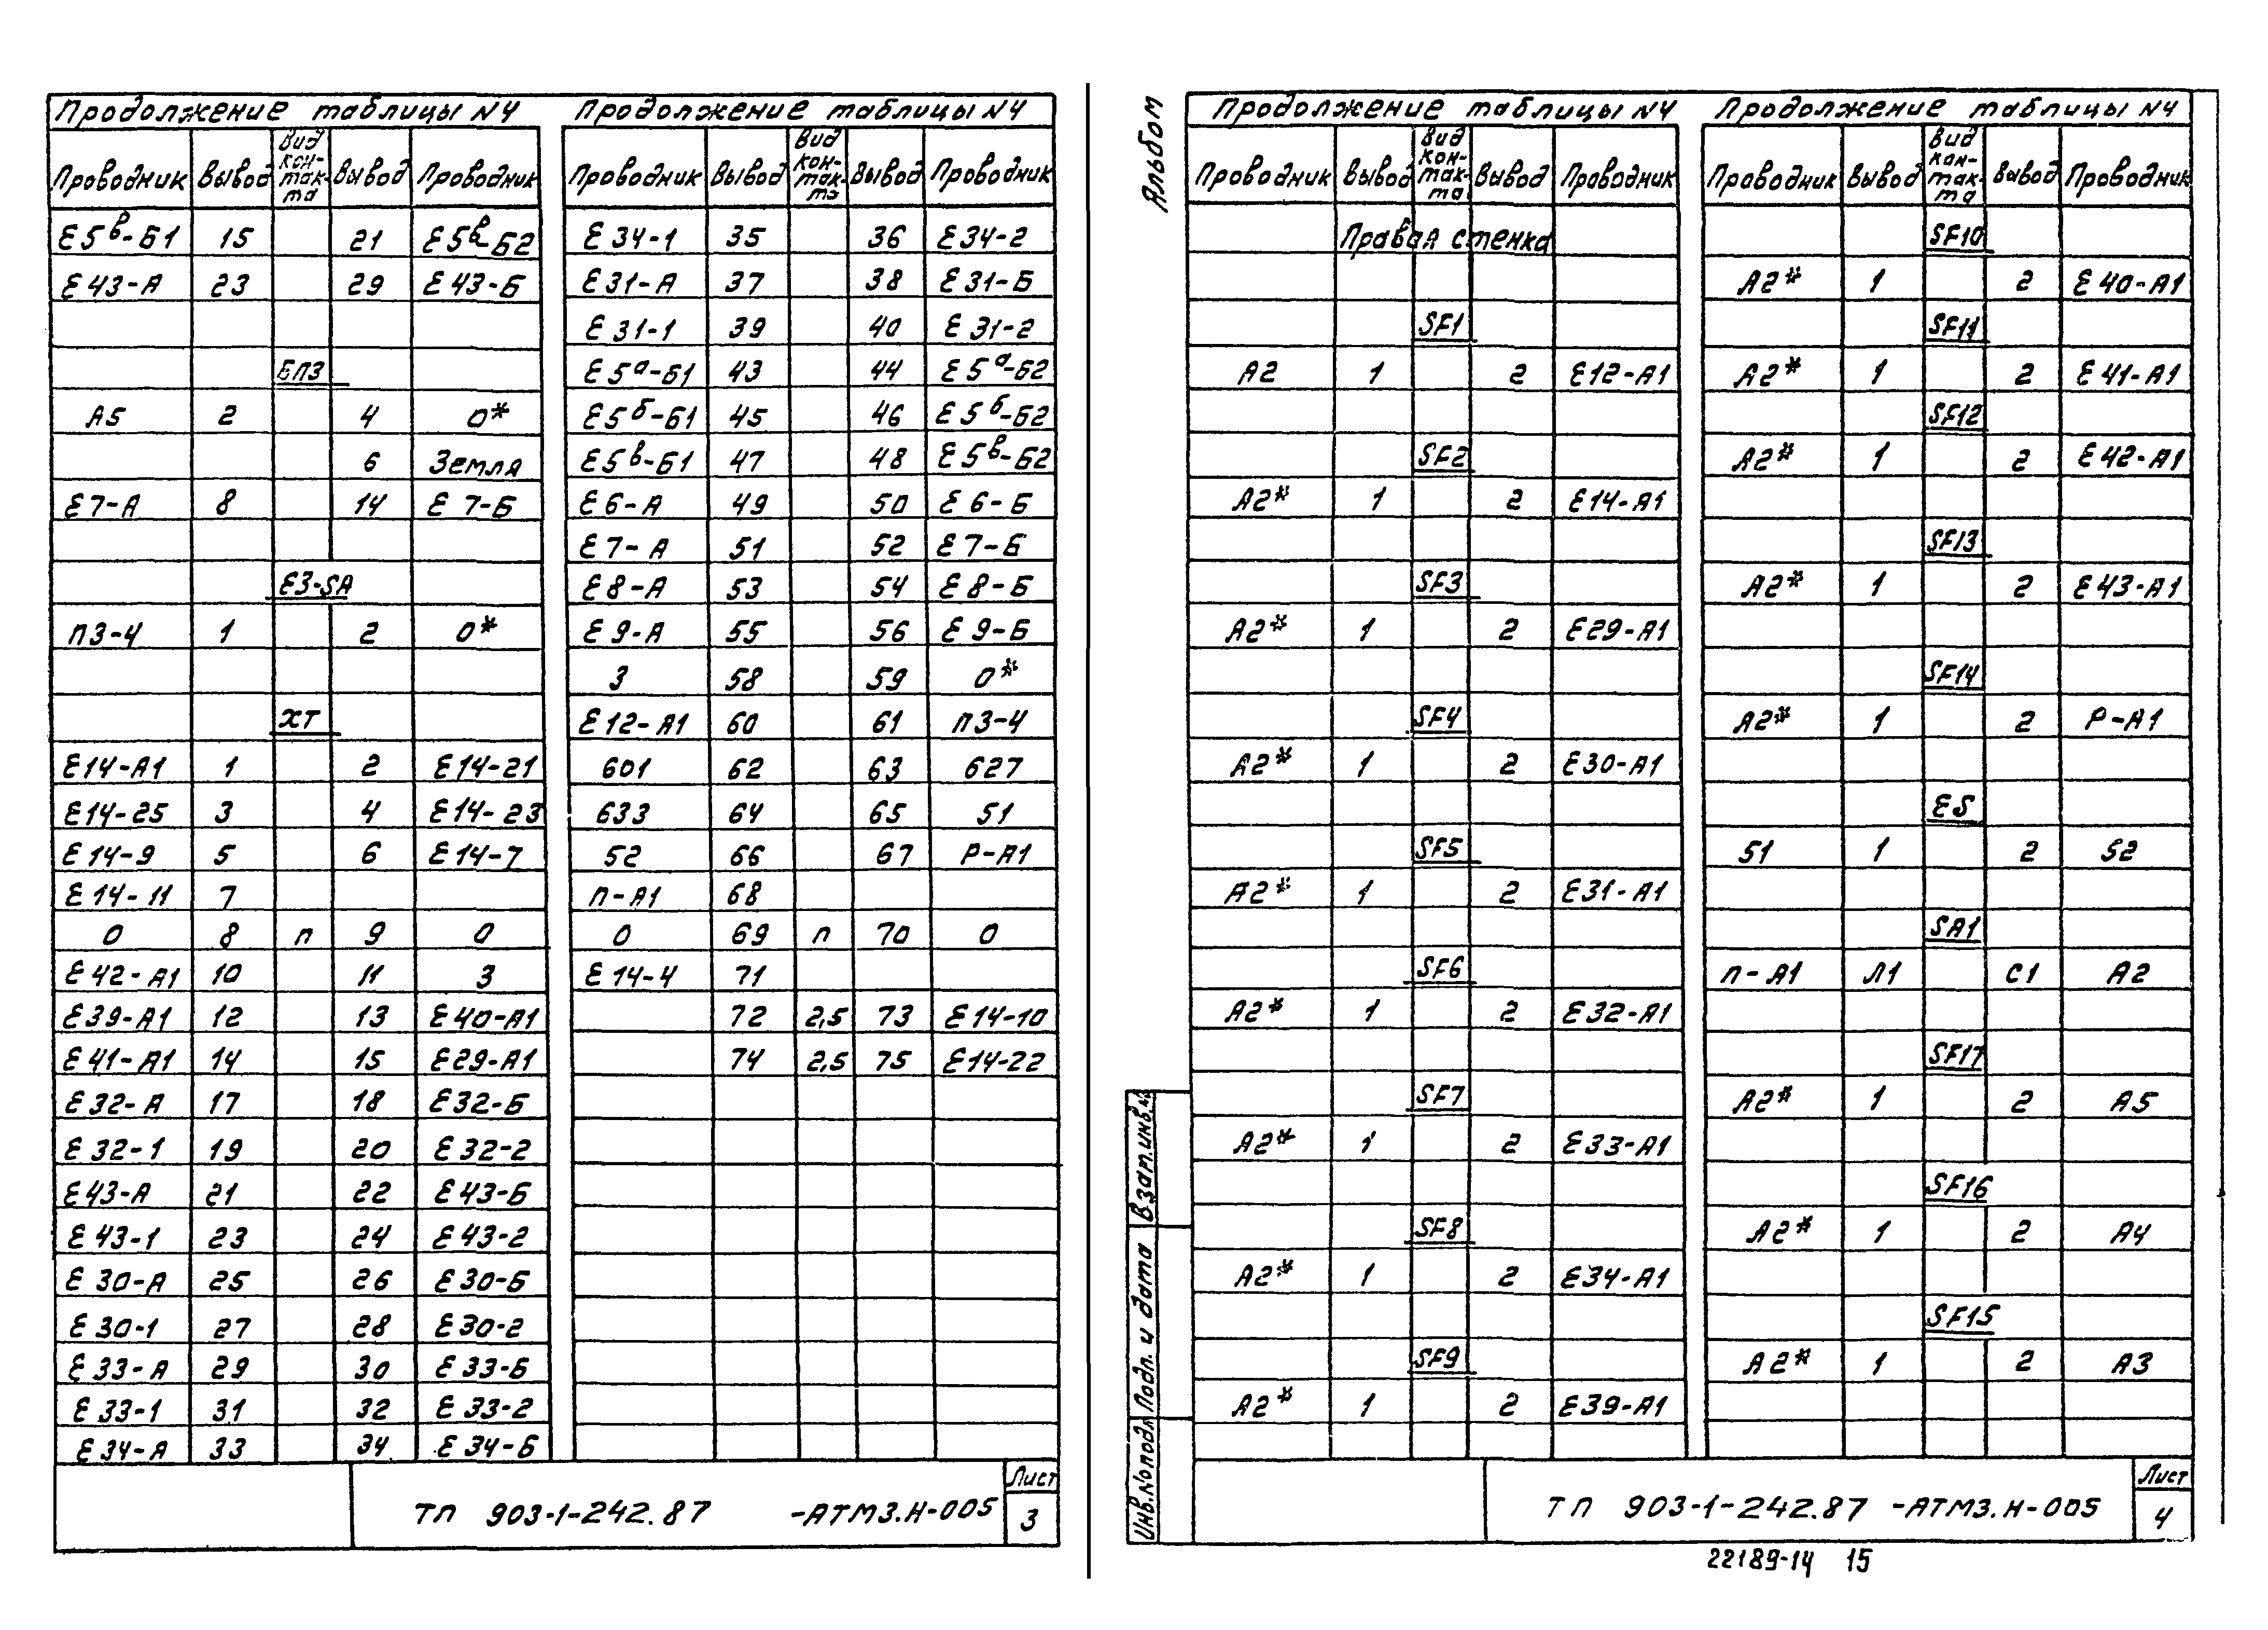 Продолжение таблицы N4
Проводник Вывод Вид кон-так-та Вывод Проводник
Е5в-Б1 15 21 Е5в-Б2
Е43-А 23 29 Е43-Б
БП3
А5 2 4 0*
6 Земля
Е7-А 8 14 Е7-Б
Е3-SA
П3-4 1 2 0*
ХТ
Е14-А1 1 2 Е14-21
Е14-25 3 4 Е14-23
Е14-9 5 6 Е14-7
Е14-11 7
0 8 п 9 0
Е42-А1 10 11 3
Е39-А1 12 13 Е40-А1
Е41-А1 14 15 Е29-А1
Е32-А 17 18 Е32-Б
Е32-1 19 20 Е32-2
Е43-А 21 22 Е43-Б
Е43-1 23 24 Е43-2
Е30-А 25 26 Е30-Б
Е30-1 27 28 Е30-2
Е33-А 29 30 Е33-Б
Е33-1 31 32 Е33-2
Е34-А 33 34 Е34-Б
Продолжение таблицы N4
Проводник Вывод Вид кон-так-та Вывод Проводник
Е34-1 35 36 Е34-2
Е31-А 37 38 Е31-Б
Е31-1 39 40 Е31-2
Е5а-Б1 43 44 Е5а-Б2
Е5б-Б1 45 46 Е5б-Б2
Е5в-Б1 47 48 Е5в-Б2
Е6-А 49 50 Е6-Б
Е7-А 51 52 Е7-Б
Е8-А 53 54 Е8-Б
Е9-А 55 56 Е9-Б
3 58 59 0*
Е12-А1 60 61 П3-4
601 62 63 627
633 64 65 51
52 66 67 Р-А1
П-А1 68
0 69 п 70 0
Е14-4 71
72 2,5 73 Е14-10
74 2,5 75 Е14-22
ТП 903-1-242.87 -АТМ3.Н-005
Лист
3
Альбом
Продолжение таблицы N4
Проводник Вывод Вид кон-так-та Вывод Проводник
Правая стенка
SF1
А2 1 2 Е12-А1
SF2
А2* 1 2 Е14-А1
SF3
А2* 1 2 Е29-А1
SF4
А2* 1 2 Е30-А1
SF5
А2* 1 2 Е31-А1
SF6
А2* 1 2 Е32-А1
SF7
А2* 1 2 Е33-А1
SF8
А2* 1 2 Е34-А1
SF9
А2* 1 2 Е39-А1
Продолжение таблицы N4
Проводник Вывод Вид кан-так-та Вывод Проводник
SF10
А2* 1 2 Е40-А1
SF11
А2* 1 2 Е41-А1
SF12
А2* 1 2 Е42-А1
SF13
А2* 1 2 Е43-А1
SF14
А2* 1 2 Р-А1
ES
51 1 2 52
SA1
п-А1 Л1 С1 А2
SF17
А2* 1 2 А5
SF16
А2* 1 2 А4
SF15
А2* 1 2 А3
Инв.№подл. Подп. и дата Взам.инв.№
ТП 903-1-242.87 -АТМ3.Н-005
Лист
4
22189-14 15